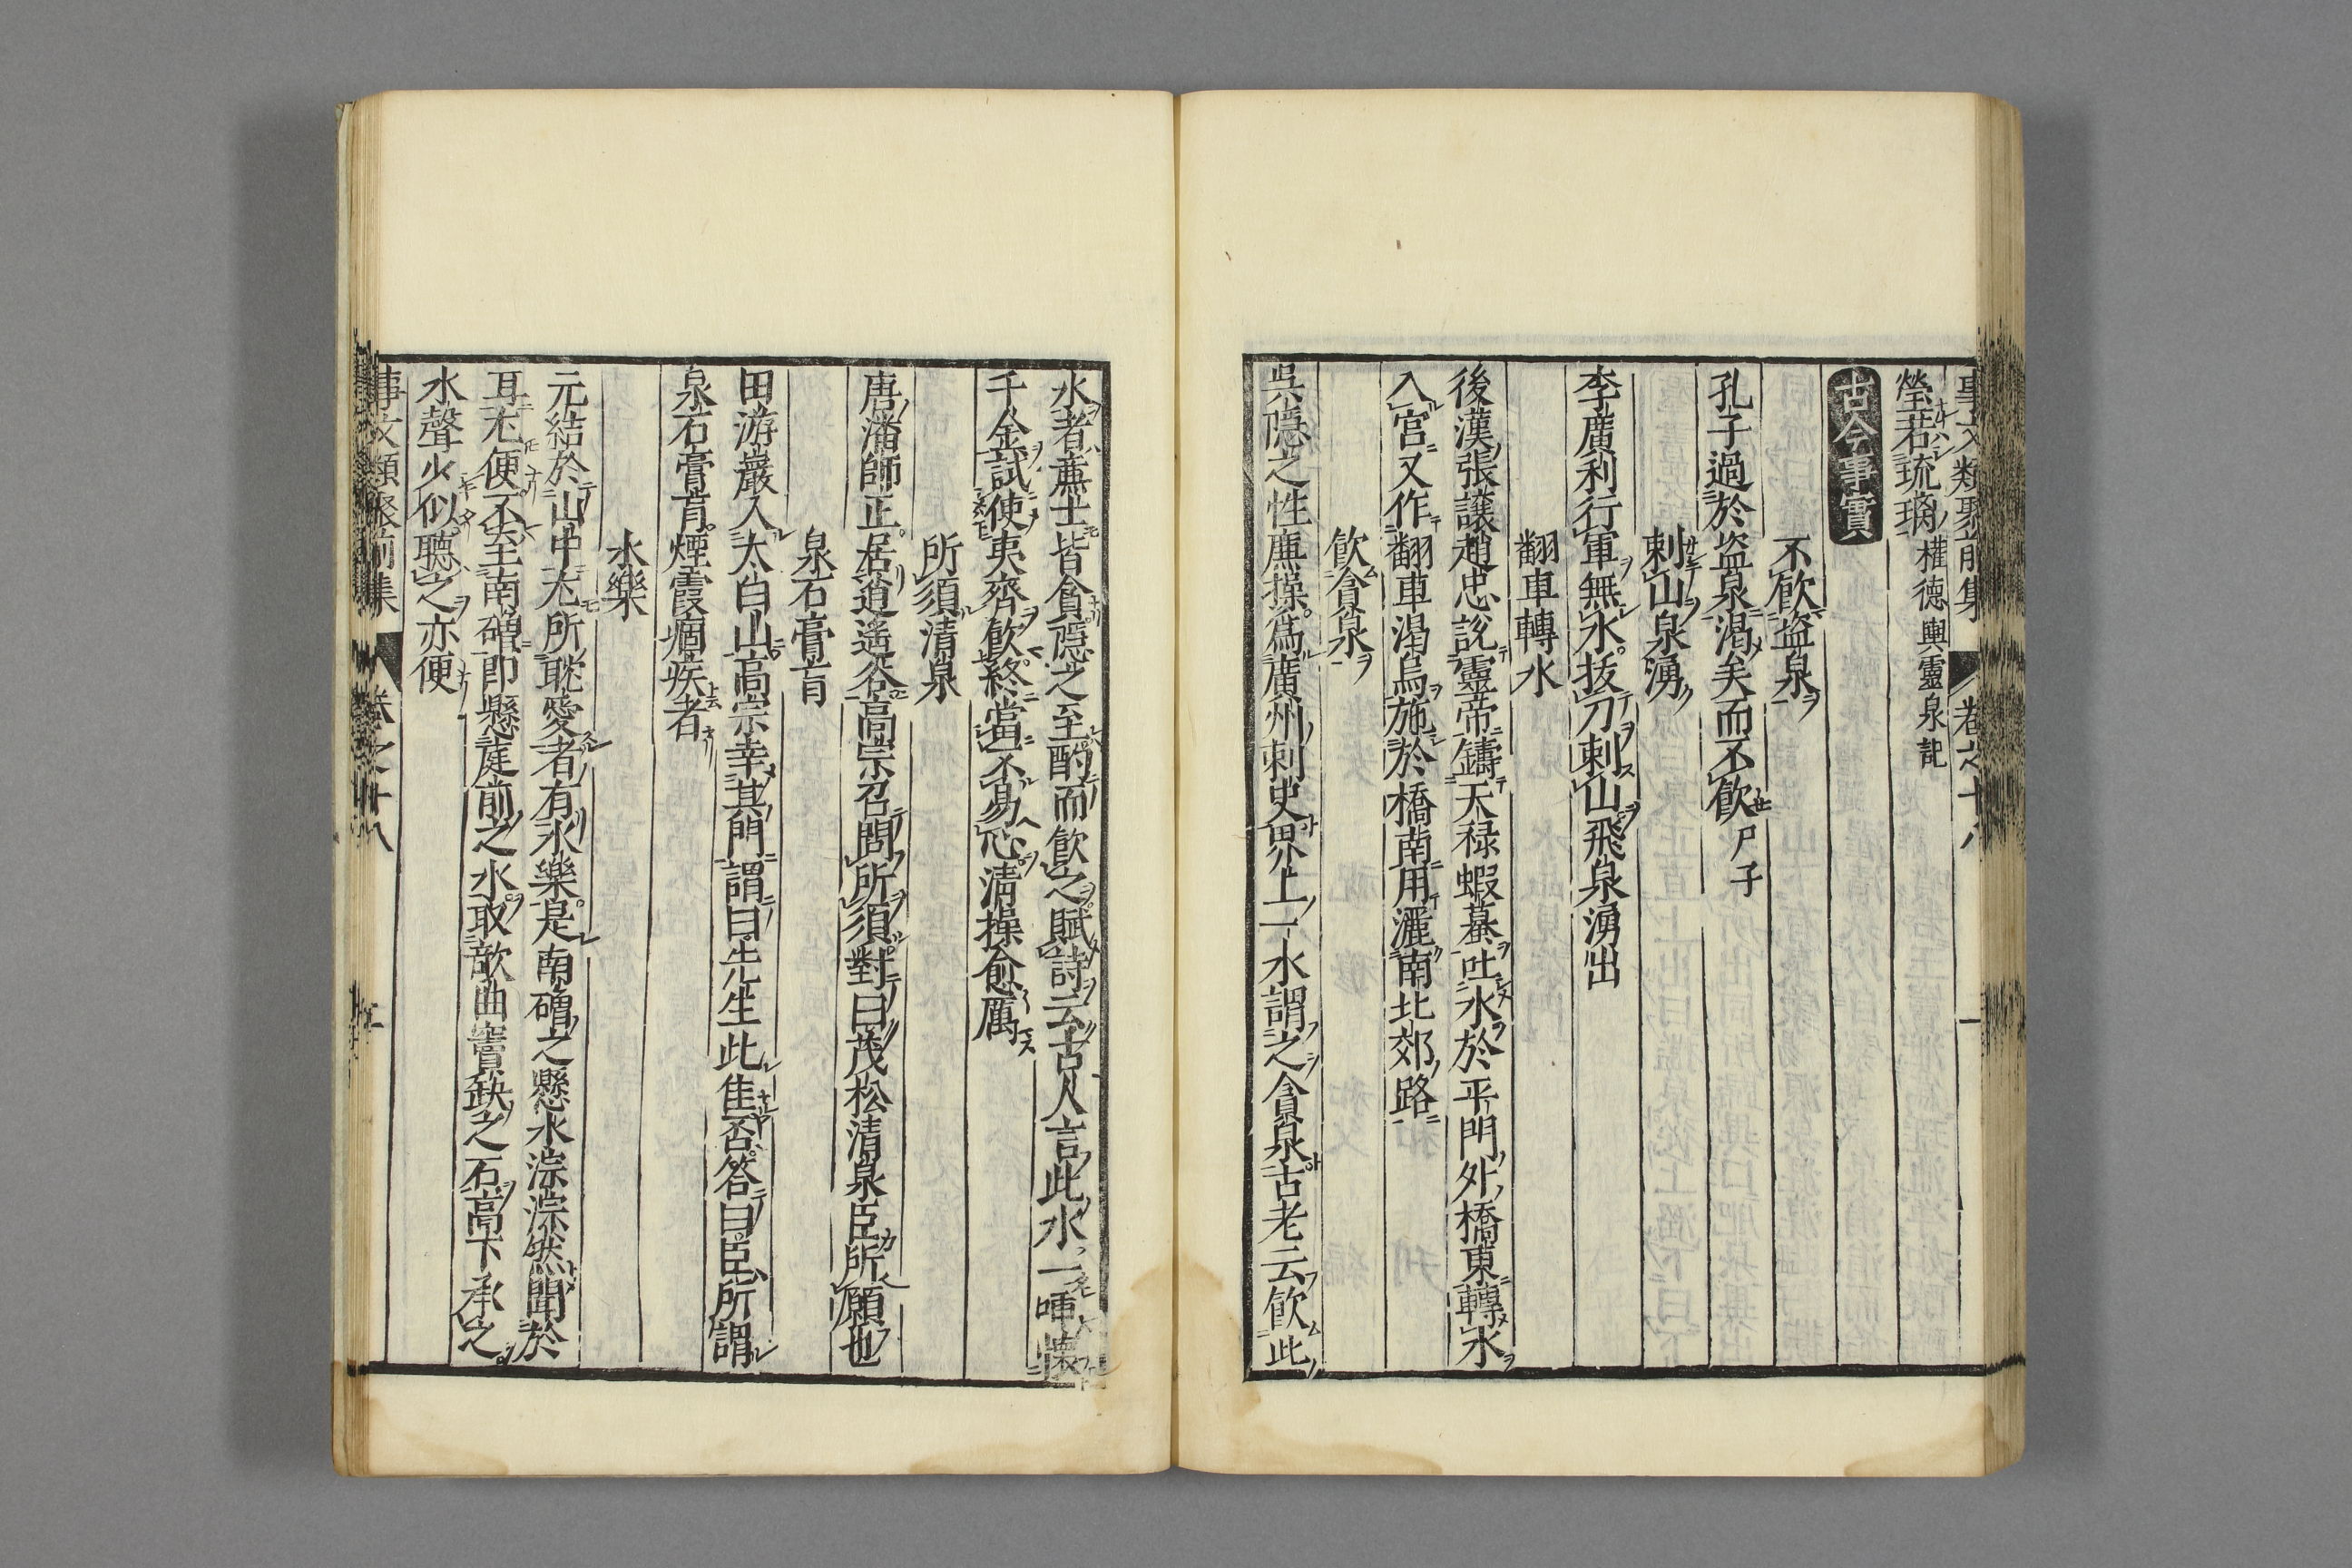 事文類聚前集 卷之十八
瑩若琉璃權德輿靈泉記
古今事實
不飮盜泉
孔子過於盜泉渴矣而不飮尸子
刺山泉湧
李廣利行軍無水拔刀刺山飛泉湧出
翻車轉水
後漢張讓趙忠説靈帝鑄天禄蝦蟇吐水於平門外橋東轉水
入宮又作翻車渴烏施於橋南用灑南北郊路
飮貪泉
吳隱之性廉操爲廣州刺史界上一水謂之貪泉古老云飮此
水者廉士皆貪隱之至酌而飮之賦詩云古人言此水一歃懷
千金試使夷齊飮終當不易心清操愈厲
所須清泉
唐潘師正居逍遙谷高宗召問所須對曰茂松清泉臣所願也
泉石膏肓
田游巖入太白山高宗幸其門謂曰先生此佳否答曰臣所謂
泉石膏肓煙霞痼疾者
水樂
元結於山中尤所耽愛者有水樂是南磳之懸水淙淙然聞於
耳尤便不至南磳即懸庭前之水取欹曲竇缺之石高下承之
水聲少似聽之亦便
事文類聚前集 卷之十八